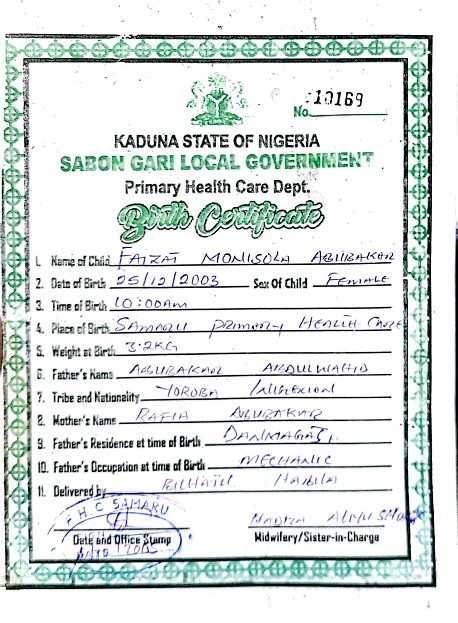 No. 10169
KADUNA STATE OF NIGERIA
SABON GARI LOCAL GOVERNMENT
Primary Health Care Dept.
Birth Certificate
1. Name of Child FAIZAT MONISOLA ABUBAKAR
2. Date of Birth 25/12/2003 Sex Of Child FEMALE
3. Time of Birth 10:00AM
4. Place of Birth SAMARU PRIMARY HEALTH CARE
5. Weight at Birth 3.2KG
6. Father's Name ABUBAKAR ABDULWAHID
7. Tribe and Nationality YOROBA
8. Mother's Name RAFIA ABUBAKAR
9. Father's Residence at time of Birth DANMAGAJI
10. Father's Occupation at time of Birth MECHANIC
11. Delivered by HABILA
P.H.C SAMARU
Date and Office Stamp
Midwifery/Sister-in-Charge